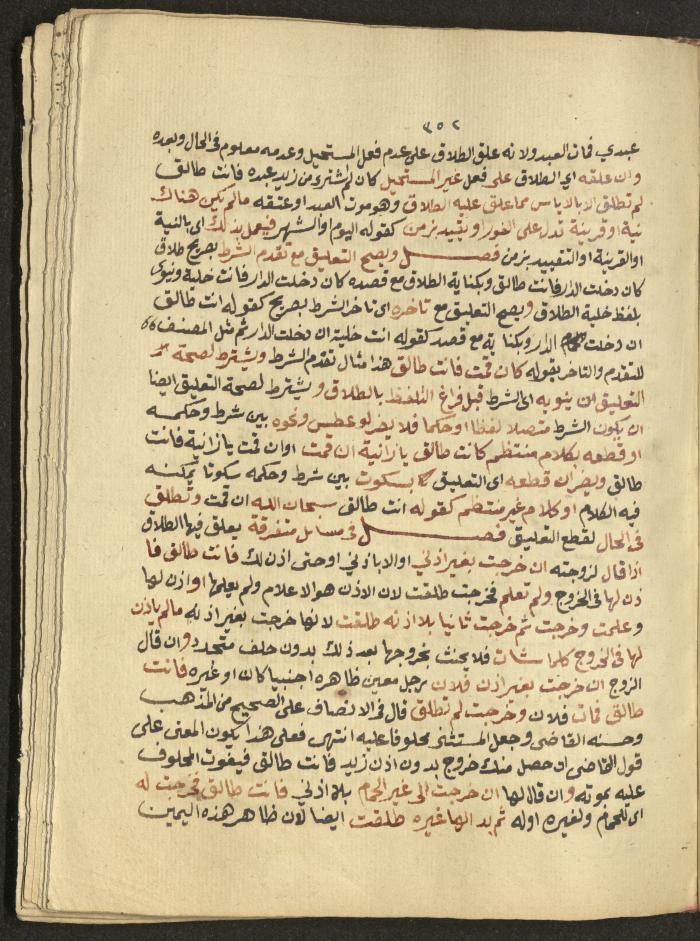 ٣٥٢
عبدي فمات العبد ولانه علق الطلاق على عدم فعل المستحيل وعدمه معلوم في الحال وبعده
وان علقه اي الطلاق على فعل غير المستحيل كان لم اشتر من زيد عبده فانت طالق
لم تطلق الا بالاياس مما علق عليه الطلاق وهو موت العبد او عتقه مالم يكن هناك
نية او قرينة تدل على الفور او تقييد بزمن كقوله اليوم او الشهر فيعمل بذلك اي بالنية
او القرينة او التقييد بزمن فصل ويصح التعليق مع تقدم الشرط بصريح طلاق
كان دخلت الدار فانت طالق وبكناية الطلاق مع قصده كان دخلت الدار فانت خلية ونوى
بلفظ خلية الطلاق ويصح التعليق مع تاخره اي تاخر الشرط بصريح كقوله انت طالق
ان دخلت الدار وبكناية مع قصد كقوله انت خلية ان دخلت الدار ثم مثل المصنف
للتقدم والتاخر بقوله كان قمت فانت طالق هذا مثال تقدم الشرط ويشترط لصحة
التعليق ان ينويه اي الشرط قبل فراغ التلفظ بالطلاق ويشترط لصحة التعليق ايضا
ان يكون الشرط متصلا لفظا او حكما فلا يضر لو عطس ونحوه بين شرط وحكمه
او قطعه بكلام منتظم كانت طالق يا زانية ان قمت او ان قمت يا زانية فانت
طالق ويضر ان قطعه اي التعليق بسكوت بين شرط وحكمه سكوتا يمكنه
فيه الكلام او كلام غير منتظم كقوله انت طالق سبحان الله ان قمت وتطلق
في الحال لقطع التعليق فصل في مسائل متفرقة يعلق فيها الطلاق
اذا قال لزوجته ان خرجت بغير اذني او الا باذني او حتى اذن لك فانت طالق فا
ذن لها في الخروج ولم تعلم فخرجت طلقت لان الاذن هو الاعلام ولم يعلمها او اذن لها
وعلمت وخرجت ثم خرجت ثانيا بلا اذنه طلقت لانها خرجت بغير اذنه مالم ياذن
لها في الخروج كلما شات فلا يحنث بخروجها بعد ذلك بدون حلف متجدد وان قال
الزوج ان خرجت بغير اذن فلان برجل معين ظاهره اجنبيا كان او غيره فانت
طالق فمات فلان وخرجت لم تطلق قال في الانصاف على الصحيح من المذهب
وحسنه القاضي وجعل المستثنى محلوفا عليه انتهى فعلى هذا يكون المعنى على
قول القاضي ان حصل منك خروج بدون اذن زيد فانت طالق فيفوت المحلوف
عليه بموته وان قال لها ان خرجت الى غير الحمام بلا اذني فانت طالق فخرجت له
اي للحمام ولغيره اوله ثم بدا لها غيره طلقت ايضا لان ظاهر هذه اليمين